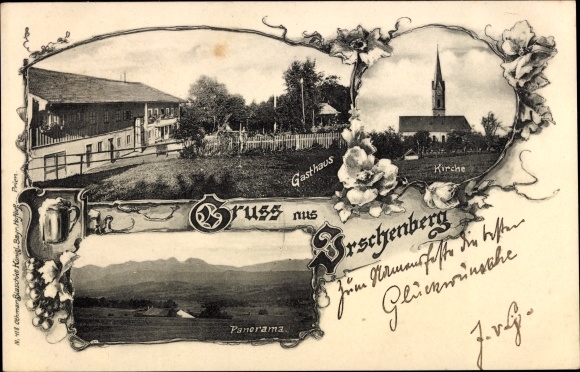 Gasthaus
Kirche
Gruss aus
Irschenberg
Panorama
Zum Namensfeste die besten
Glückwünsche